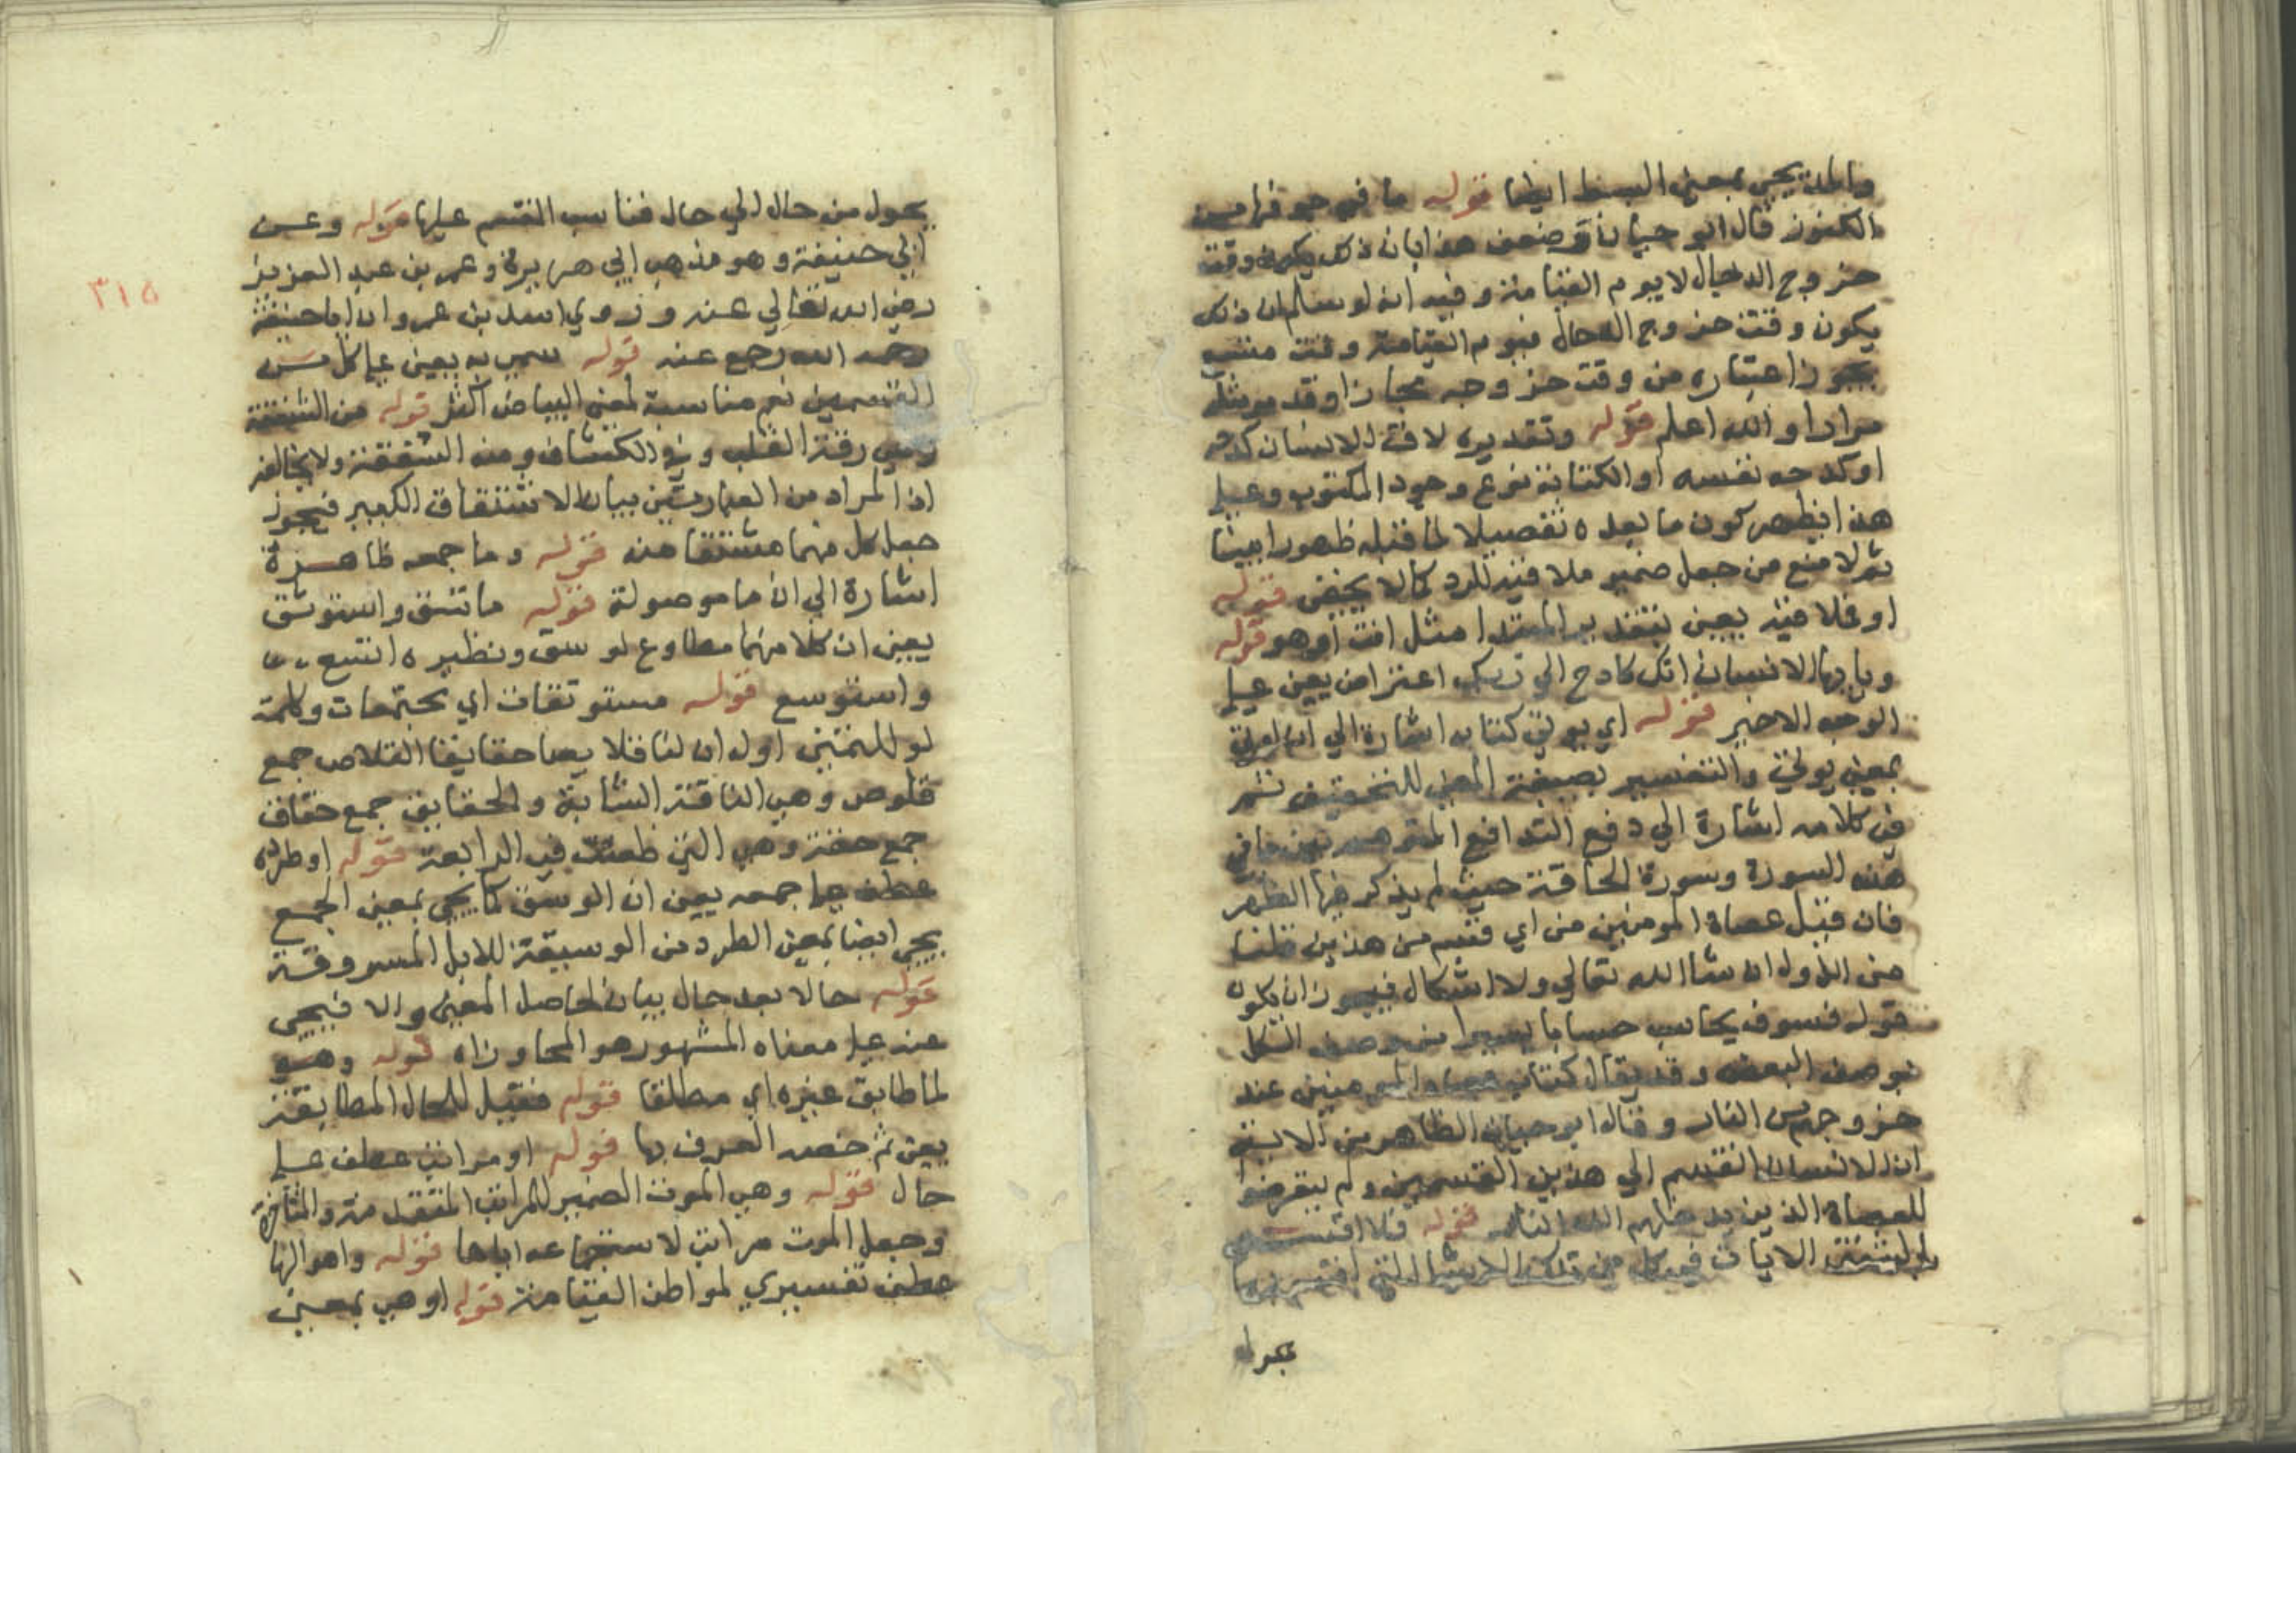 والمد يجيء بمعنى البسط ايضا قوله ما في جوفها من
الكنوز قال ابو حيان وضعف هذا بان ذلك يكون وقت
خروج الدجال لا يوم القيامة وفيه انه لو سلم ان ذلك
يكون وقت خروج الدجال فيوم القيامة وقت متسع
يجوز اعتباره من وقت خروجه مجازا وقد
مرارا والله اعلم قوله وتقديره لاقى الانسان كدحه
او كدحه نفسه او الكتابة نوع وجود المكتوب وعلى
هذا يظهر كون ما بعده تفصيلا لما قبله ظهورا بينا
ثم لا منع من جعل ضمير ملاقيه للرد كما لا يخفى قوله
او فملاقيه يعني بتقدير المبتدا مثل انت او هو قوله
ويا ايها الانسان انك كادح الى ربك اعتراض يعني على
الوجه الاخير قوله اي يوتى كتابه اشارة الى ان اوتي
بمعنى يوتى والتفسير بصيغة المعنى للتحقيق ثم
في كلامه اشارة الى دفع التدافع المتوهم بين ما في
هذه السورة وسورة الحاقة حيث لم يذكر فيها الظهر
فان قيل عصاة المومنين من اي قسم من هذين قلنا
من الاول ان شا الله تعالى ولا اشكال فيجوز ان يكون
قوله فسوف يحاسب حسابا يسيرا من وصف الكل
بوصف البعض وقد يقال كتاب عصاة المومنين عند
خروجهم من النار وقال ابو حيان الظاهر من الاية
ان الانسان انقسم الى هذين القسمين ولم يتعرضوا
للعصاة الذين يدخلهم الله النار قوله فلا اقسم
الايات فيه كل من تلك الاشيا التي اقسم بها
يحول من حال الى حال فناسب القسم عليها قوله وعن
ابي حنيفة وهو مذهب ابي هريرة وعمر بن عبد العزيز
رضي الله تعالى عنه وروي اسد بن عمرو ان ابا حنيفة
رحمه الله رجع عنه قوله سمي به يعني على كل من
القسمين نعم مناسبة لمعنى البياض اكثر قوله من الشفقة
وهي رقة القلب وفي الكشاف ومنه الشفقة ولا يخالفه
اذ المراد من العبارتين بيان الاشتقاق الكبير فيجوز
جعل كل منهما مشتقا منه قوله وما جمعه ظاهرة
اشارة الى ان ما موصولة قوله فاتسق واستوسق
يعني ان كلا منهما مطاوع لوسق ونظيره اتسع
واستوسع قوله مستوسقات اي مجتمعات وكلمة
لو للتمني اوله ان لنا قلايصا حقايقا القلاص جمع
قلوص وهي الناقة الشابة والحقايق جمع حقاق
جمع حقة وهي التي طعنت في الرابعة قوله او طرده
عطف على جمعه يعني ان الوسق كما يجي بمعنى الجمع
يجي ايضا بمعنى الطرد من الوسيقة للابل المسروقة
قوله حالا بعد حال بيان لحاصل المعنى والا فيجي
عند على معناه المشهور هو المجاوزاه قوله وهو
لما طابق غيره اي مطلقا قوله فقيل للحال المطابقة
يعني ثم خصه العرف بها قوله او مراتب عطف على
حال قوله وهي الموت الضمير للمراتب المتقدمة والمتاخرة
وجعل الموت مراتب لاستجماعه اياها قوله واهوالها
عطف تفسيري لمواطن القيامة قوله او هي بمعنى
٣١٥